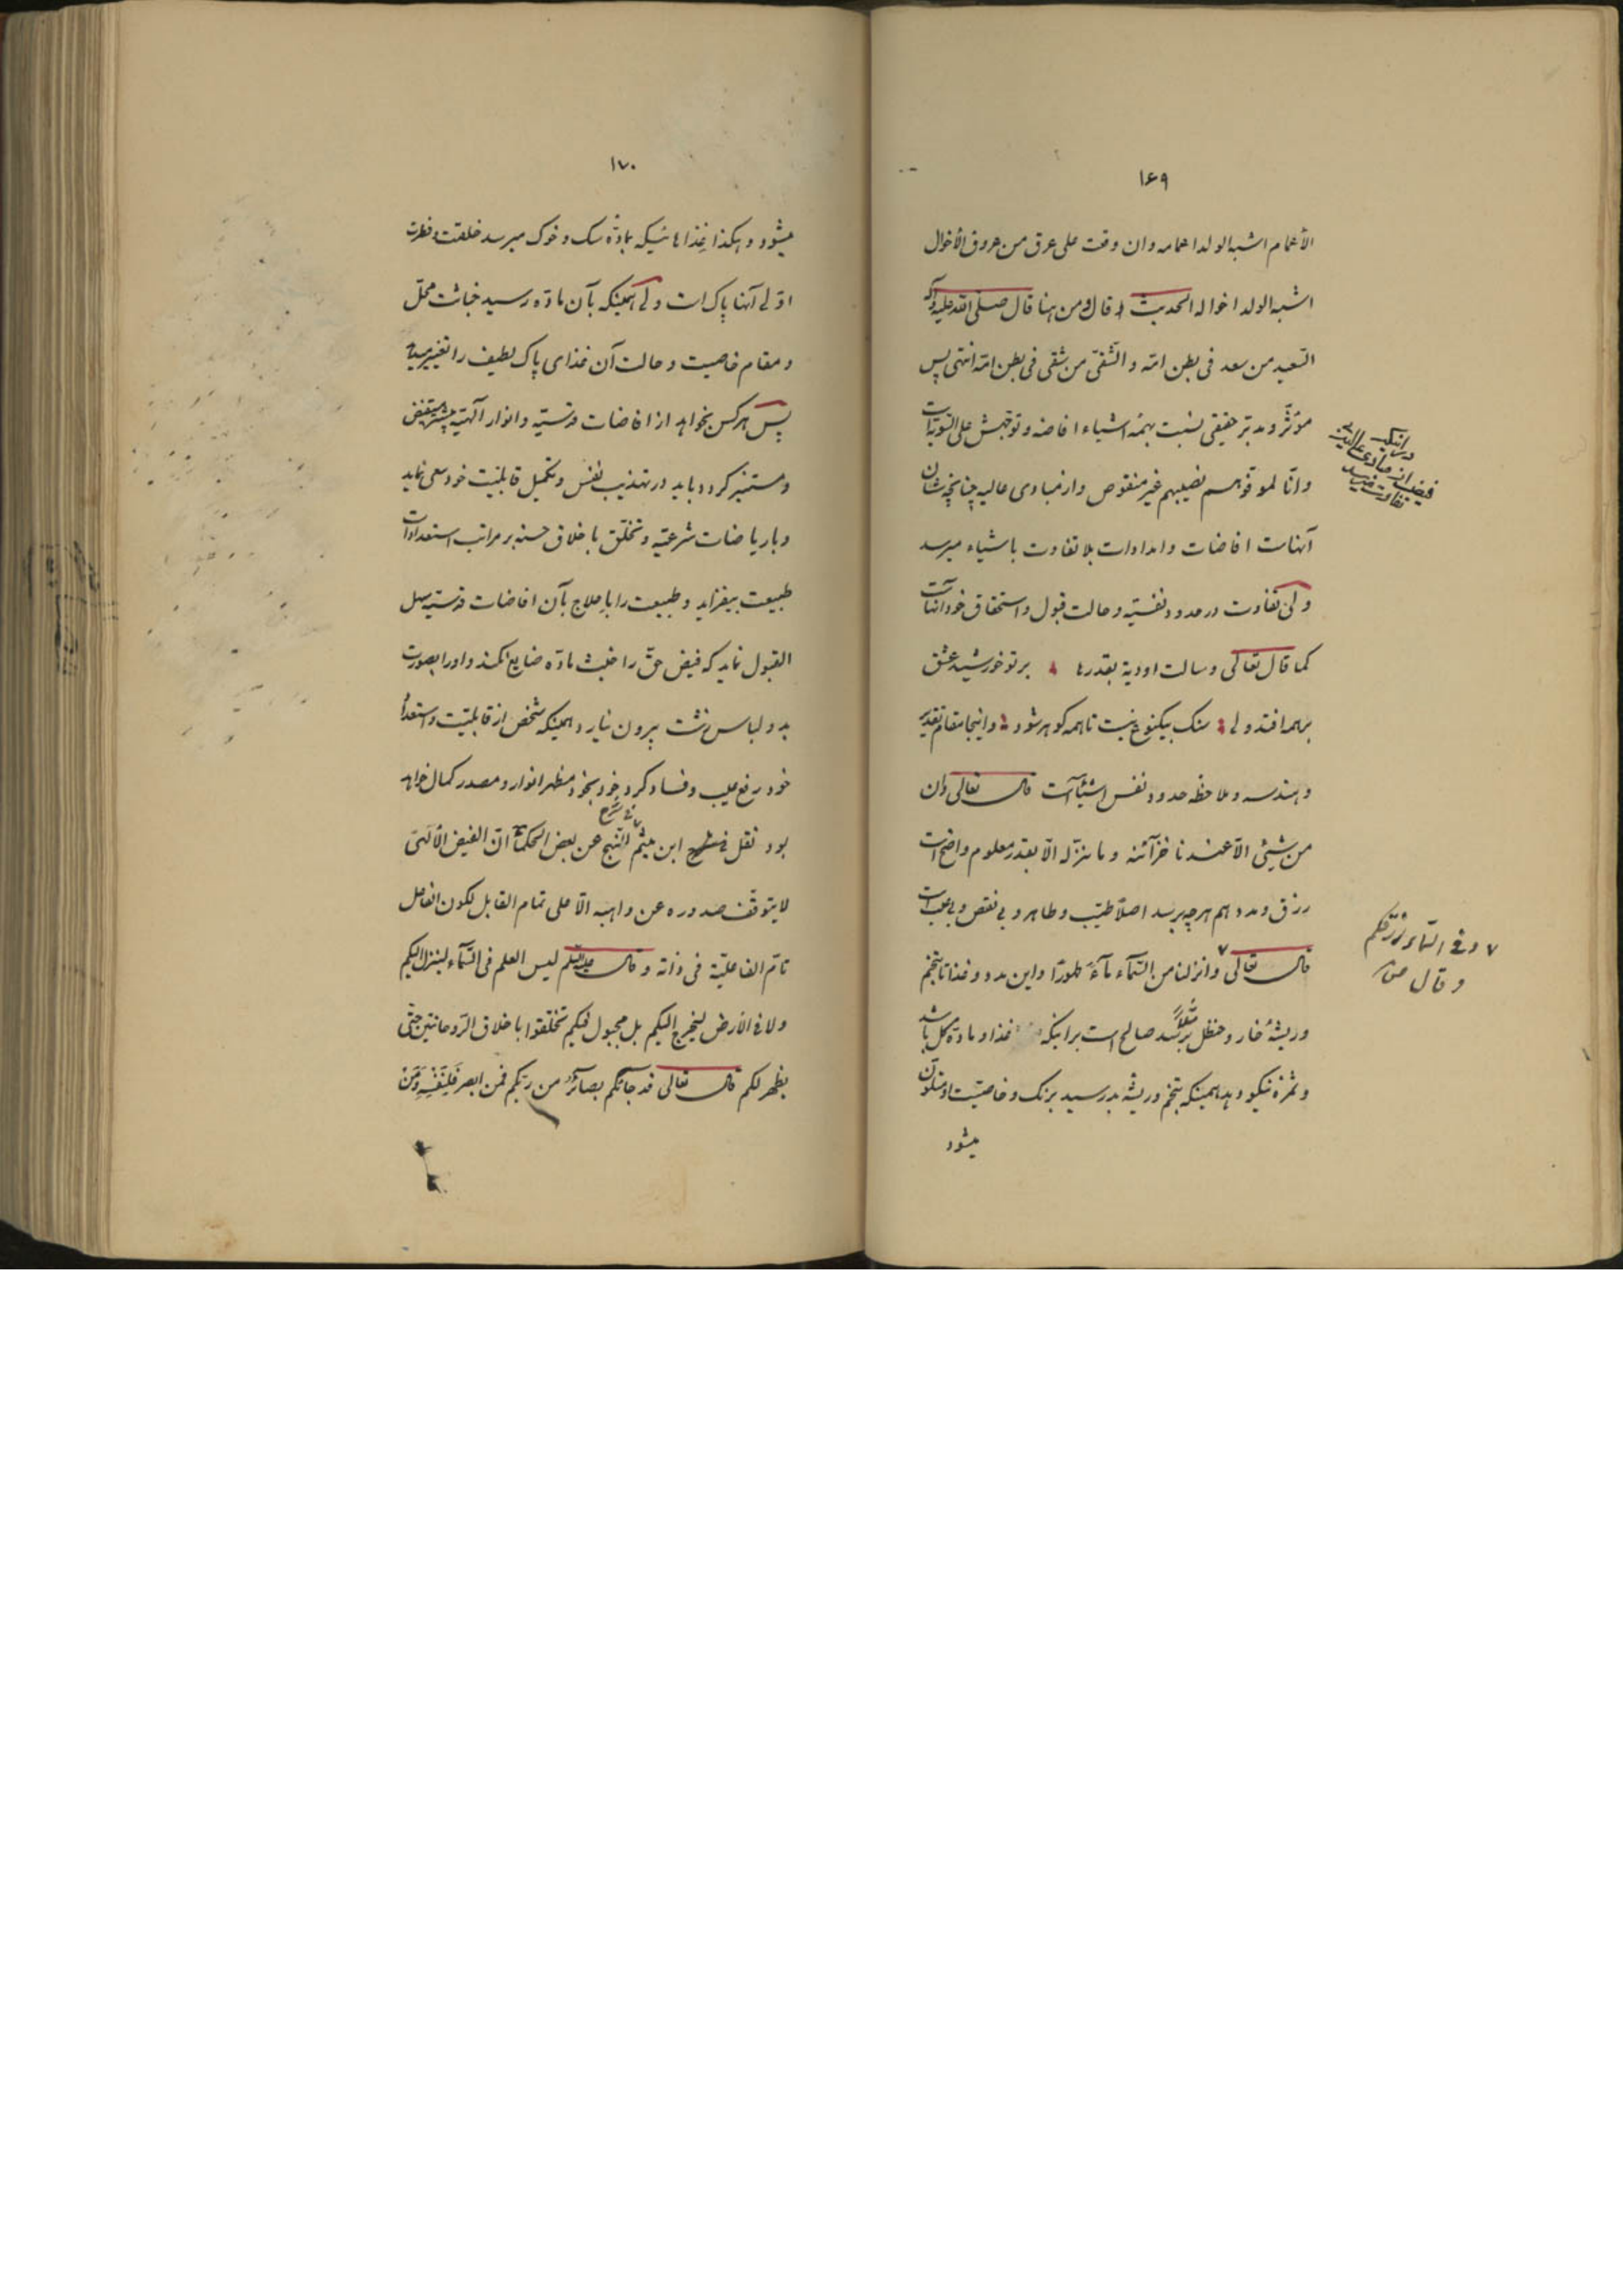 ۱۶۹
الأعمام اشبه الولد اعمامه وان وقعت على عرق من عروق الأخوال
اشبه الولد اخواله الحدیث قال ومن هنا قال صلى الله علیه وآله
السّعید من سعد فى بطن امّه والشّقىّ من شقى فى بطن امّه انتهى پس
مؤثّر و مدبّر حقیقى نسبت بهمه اشیاء افاضه و توجّهش على السّویّه است
وانّا لموفّوهم نصیبهم غیر منقوص واز مبادى عالیه چنانچه شأن
آنهاست افاضات و امدادات بلا تفاوت باشیاء میرسد
ولى تفاوت در حدود نفسیّه و حالت قبول و استحقاق خود آنهاست
کما قال تعالى وسالت اودیة بقدرها پرتو خورشید عشق
برهمه افتد ولى سنک بیکنوع نیست تا همه کوهر شود و اینجا مقام تقدیر
و هندسه و ملاحظه حدود نفس اشیاء است قال تعالى وان
من شیئى الّا عندنا خزآئنه وما ننزّله الّا بقدر معلوم واضح است
رزق و مدد هم هر چه برسد اصلاً طیّب و طاهر و بى نقص و بى عیب است
قال تعالى وانزلنا من السّمآء مآءً طهورًا و این مدد و غذا تا بتخم
و ریشهٔ خار و حنظل مثلاً نرسد صالح است برا اینکه غذا و مادّه کل باشد
و ثمره نیکو دهد همینکه بتخم و ریشه بد رسید برنک و خاصیّت او متلوّن
میشود
در اینکه
فیض از مبادى عالیه
تفاوت
۷ وفى السّماء رزقکم
وقال
۱۷۰
میشود و هکذا غذاهائیکه بمادّه سک و خوک میرسد خلقت و فطرت
اوّلى آنها پاک است ولى همینکه بآن مادّه رسید خباثت محلّ
و مقام خاصیت و حالت آن غذاى پاک لطیف را تغییر میدهد
پس هرکس بخواهد از افاضات قدسیّه و انوار الٓهیّه مستفیض
و مستنیر کردد باید در تهذیب نفس و تکمیل قابلیّت خود سعى نماید
و با ریاضات شرعیّه و تخلّق باخلاق حسنه بر مراتب استعدادات
طبیعت بیفزاید و طبیعت را با علاج بآن افاضات قدسیّه سهل
القبول نماید که فیض حقّ را خبث مادّه ضایع نکند و اورا بصورت
بد و لباس زشت بیرون نیارد و همینکه شخص از قابلیّت و استعداد
خود رفع عیب و فساد کرد خود بخود مظهر انوار و مصدر کمال خواهد
بود نقل فى شرح ابن میثم النّهج عن بعض الحکمآء انّ الفیض الألٓهىّ
لایتوقّف صدوره عن واهبه الّا على تمام القابل لکون الفاعل
تامّ الفاعلیّة فى ذاته وقال علیه السّلم لیس العلم فى السّمآء لینزل الیکم
ولا فى الأرض لیخرج الیکم بل مجبول فیکم تخلّقوا باخلاق الرّوحانیّین حتّى
یظهر لکم قال تعالى قد جآئکم بصائر من ربّکم فمن ابصر فَلِنَفْسِهِ وَمَنْ